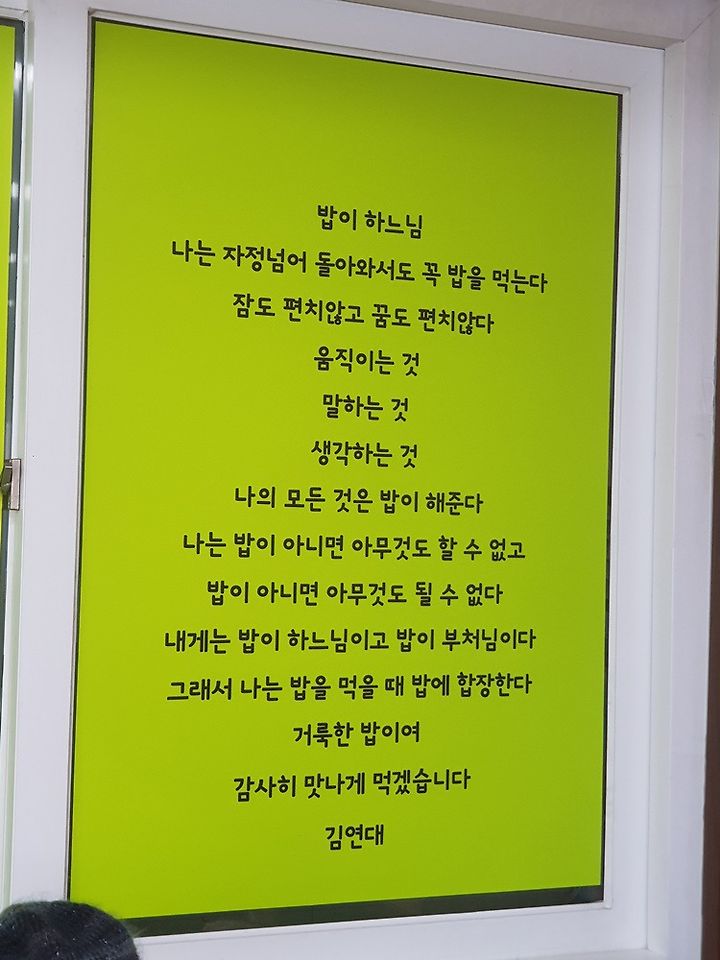 밥이 하느님
나는 자정넘어 돌아와서도 꼭 밥을 먹는다
잠도 편치않고 꿈도 편치않다
움직이는 것
말하는 것
생각하는 것
나의 모든 것은 밥이 해준다
나는 밥이 아니면 아무것도 할 수 없고
밥이 아니면 아무것도 될 수 없다
내게는 밥이 하느님이고 밥이 부처님이다
그래서 나는 밥을 먹을 때 밥에 합장한다
거룩한 밥이여
감사히 맛나게 먹겠습니다
김연대